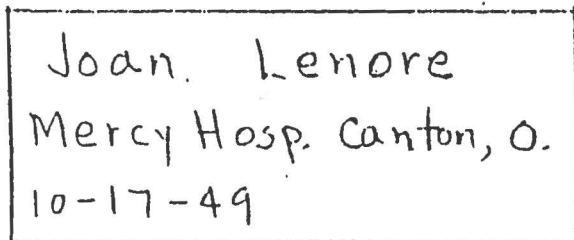 Joan. Lenore
Mercy Hosp. Canton, O.
10-17-49